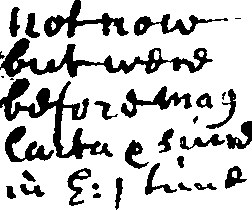 not now
but were
before mag
Carta & since
in E: 1 time